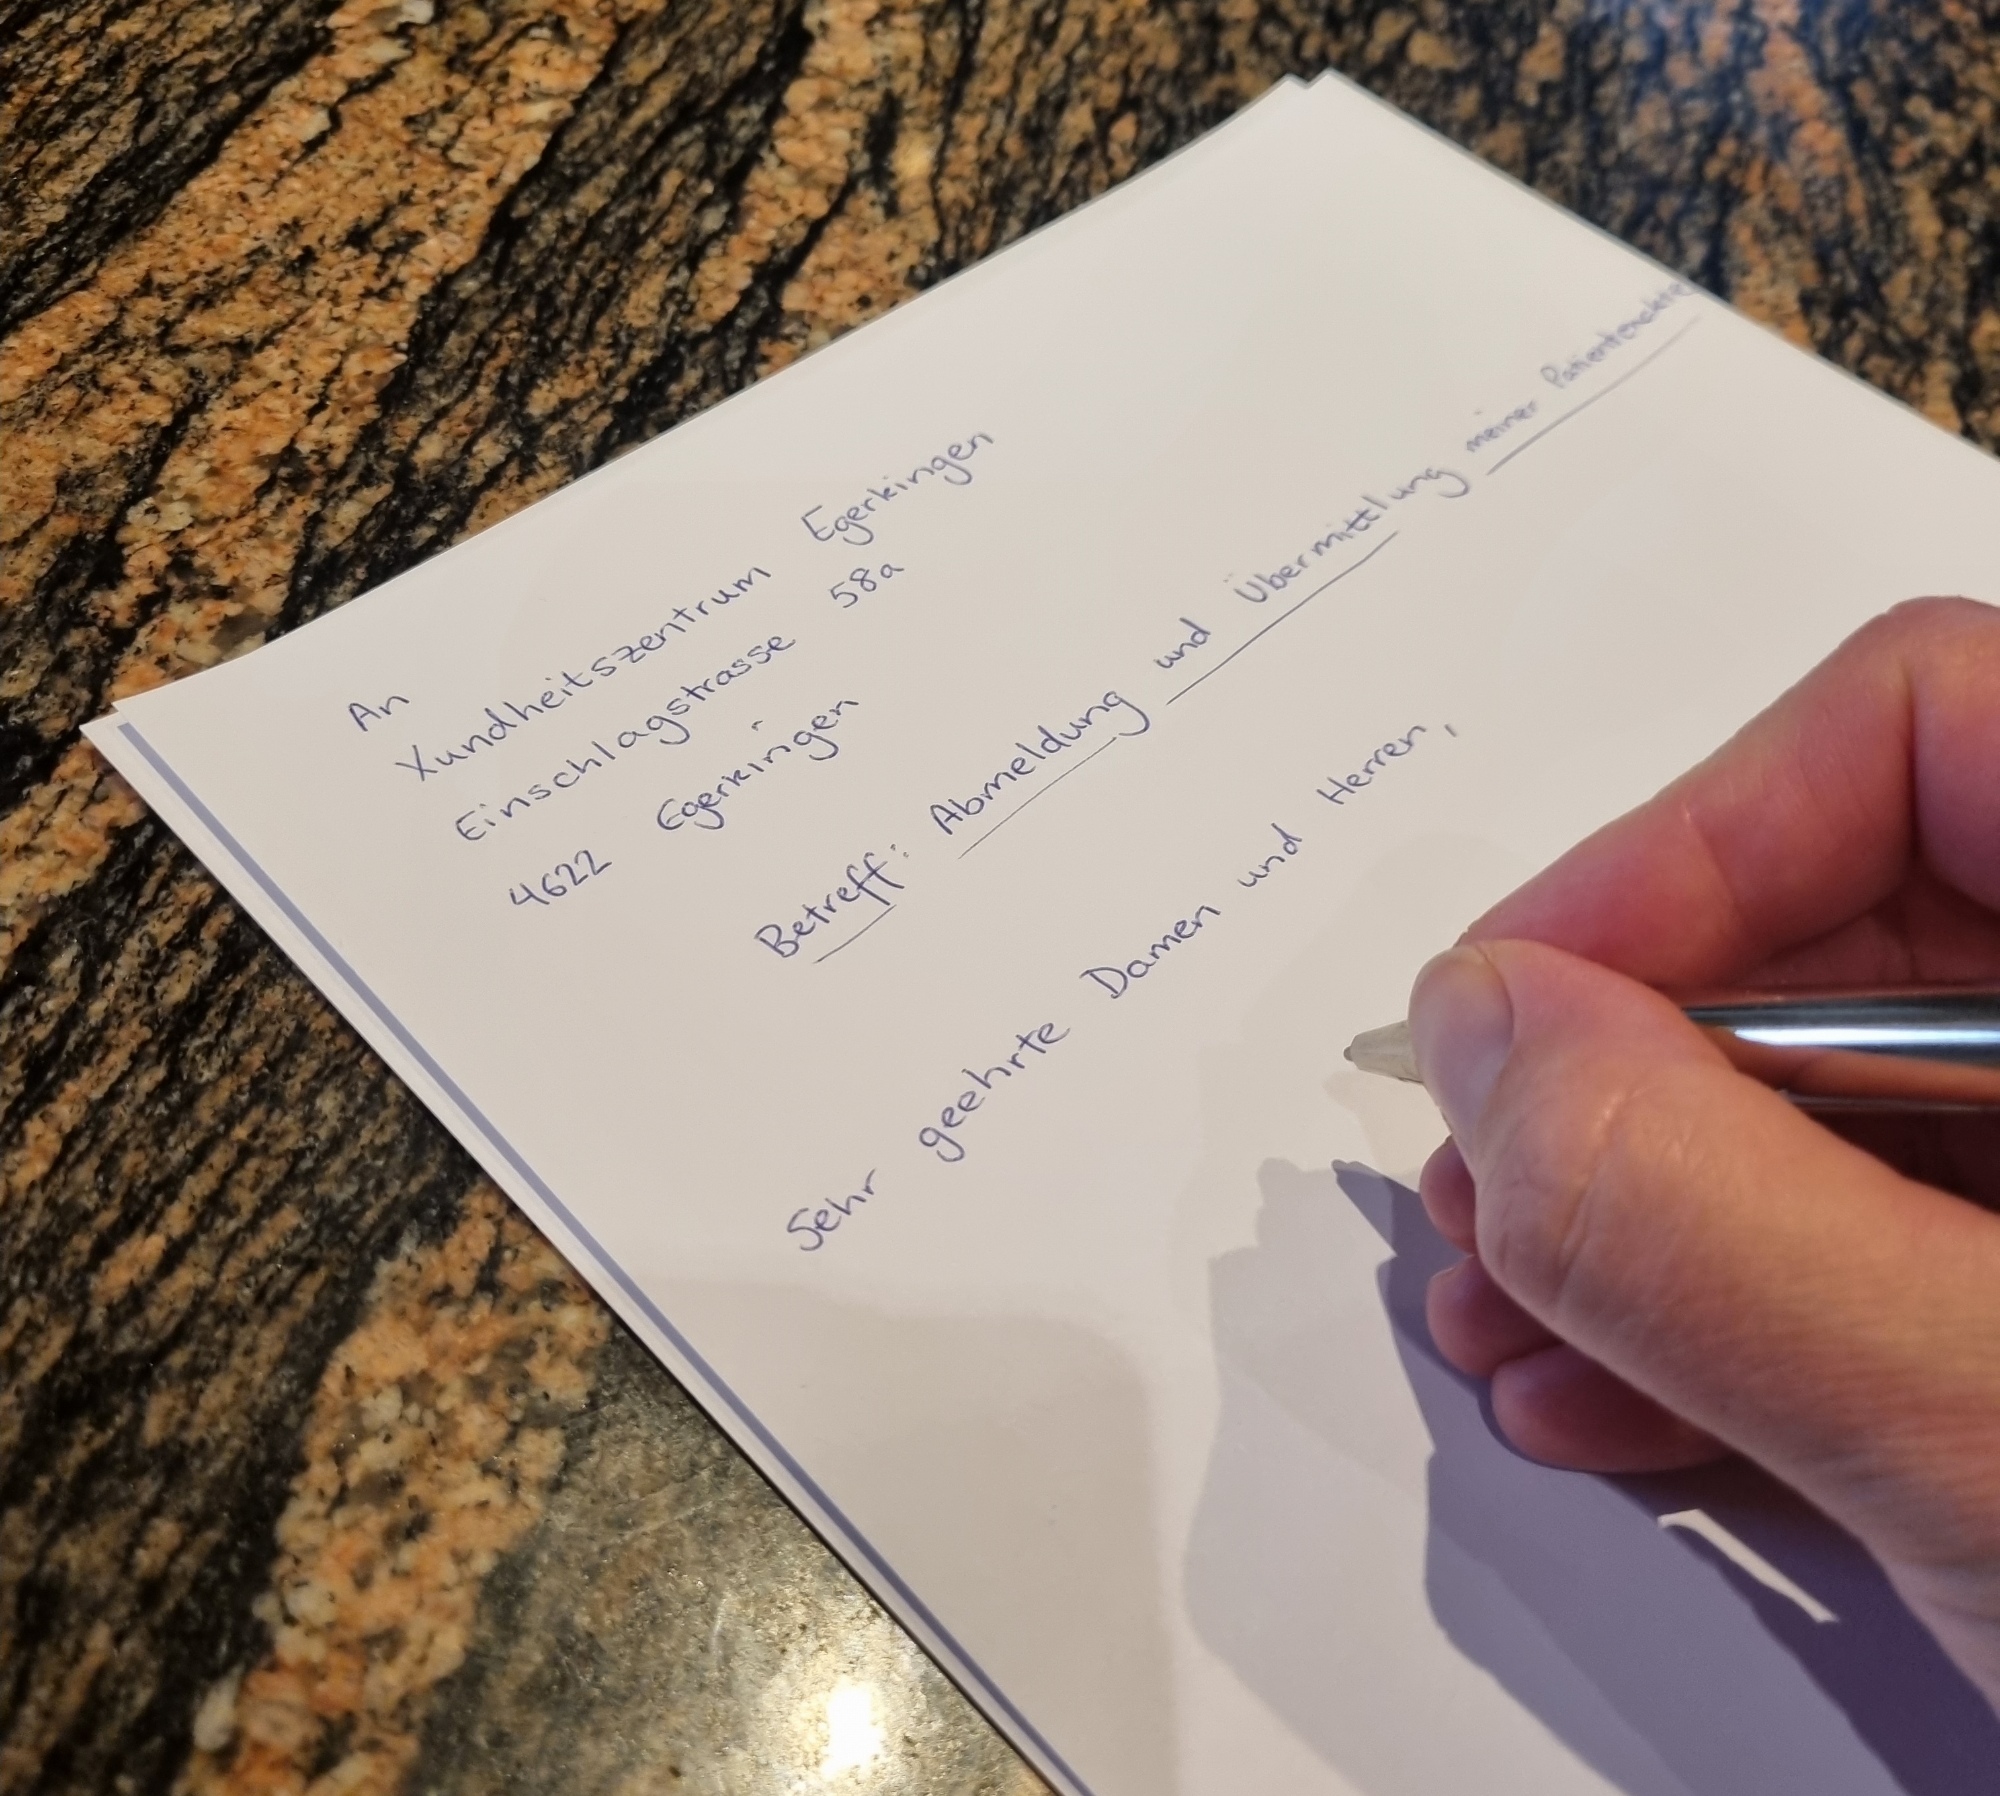 An
Xundheitszentrum Egerkingen
Einschlagstrasse 58a
4622 Egerkingen
Betreff: Abmeldung und Übermittlung meiner Patientenakte
Sehr geehrte Damen und Herren,